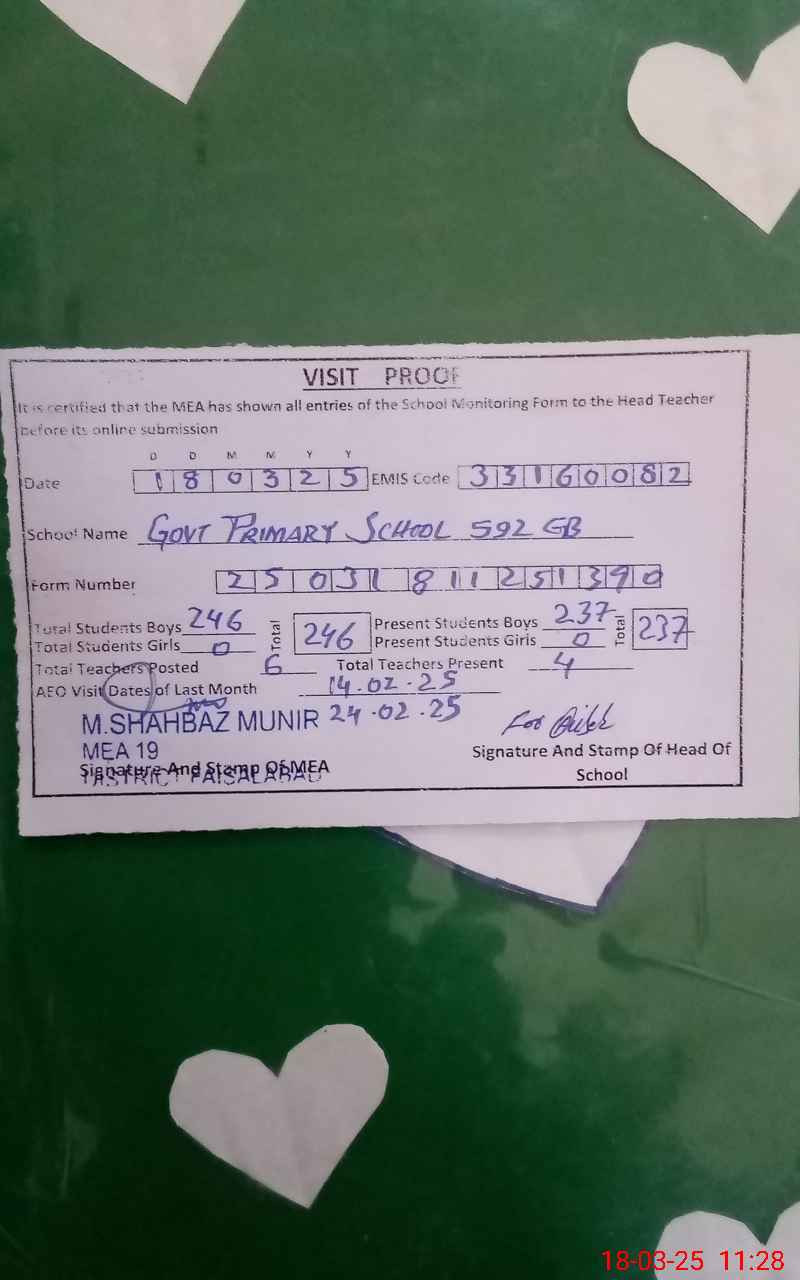 VISIT PROOF
It is certified that the MEA has shown all entries of the School Monitoring Form to the Head Teacher
before its online submission
D D M M Y Y
Date 180325 EMIS Code 33160082
School Name GOVT PRIMARY SCHOOL 592 GB
Form Number 25031811251390
Total Students Boys 246 Total 246 Present Students Boys 237 Total 237
Total Students Girls 0 Present Students Girls 0
Total Teachers Posted 6 Total Teachers Present 4
AEO Visit Dates of Last Month 14.02.25
M.SHAHBAZ MUNIR 24.02.25
MEA 19
Signature And Stamp Of MEA
DISTRICT FAISALABAD
Signature And Stamp Of Head Of
School
18-03-25 11:28